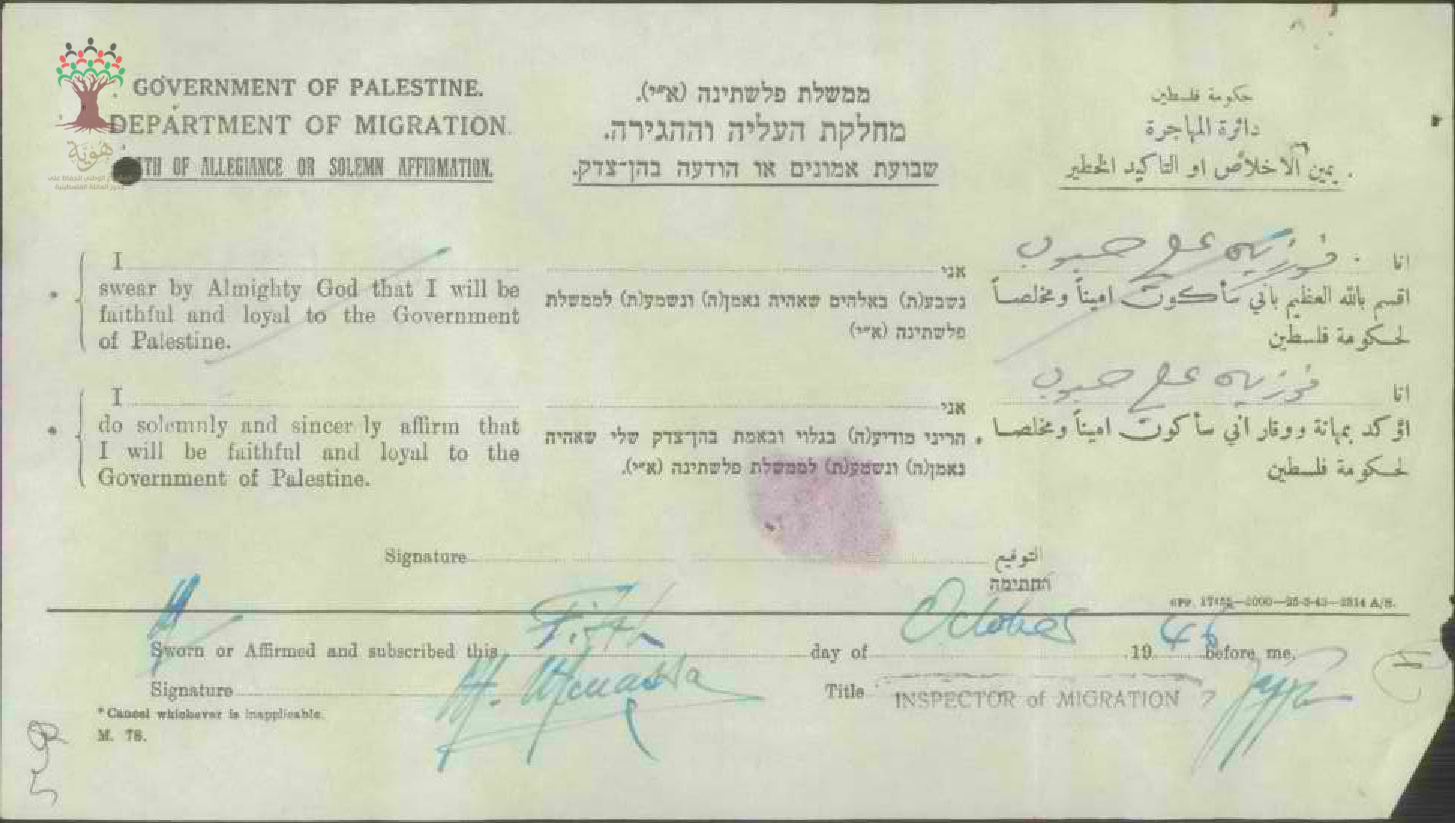 GOVERNMENT OF PALESTINE.
DEPARTMENT OF MIGRATION.
TH OF ALLEGIANCE OR SOLEMN AFFIRMATION.
ממשלת פלשתינה (א״י).
מחלקת העליה וההגירה.
שבועת אמונים או הודעה בהן־צדק.
حكومة فلسطين
دائرة المهاجرة
يمين الاخلاص او التاكيد الخطير.
هوية
* I
swear by Almighty God that I will be
faithful and loyal to the Government
of Palestine.
אני
נשבע(ת) באלהים שאהיה נאמן(ה) ונשמע(ת) לממשלת
פלשתינה (א״י)
انا فوزيه
اقسم بالله العظيم باني سأكون اميناً ومخلصاً
لحكومة فلسطين
* I
do solemnly and sincer ly affirm that
I will be faithful and loyal to the
Government of Palestine.
אני
הריני מודיע(ה) בגלוי ובאמת בהן־צדק שלי שאהיה
נאמן(ה) ונשמע(ת) לממשלת פלשתינה (א״י).
انا فوزيه
اؤكد بمهانة ووقار اني سأكون اميناً ومخلصا
لحكومة فلسطين
Signature التوقيع
החתימה
GPP. 17455—2000—25-3-43—2814 A/S.
Sworn or Affirmed and subscribed this Fifth day of October 19 46 before me.
Signature Title INSPECTOR of MIGRATION
* Cancel whichever is inapplicable.
M. 78.